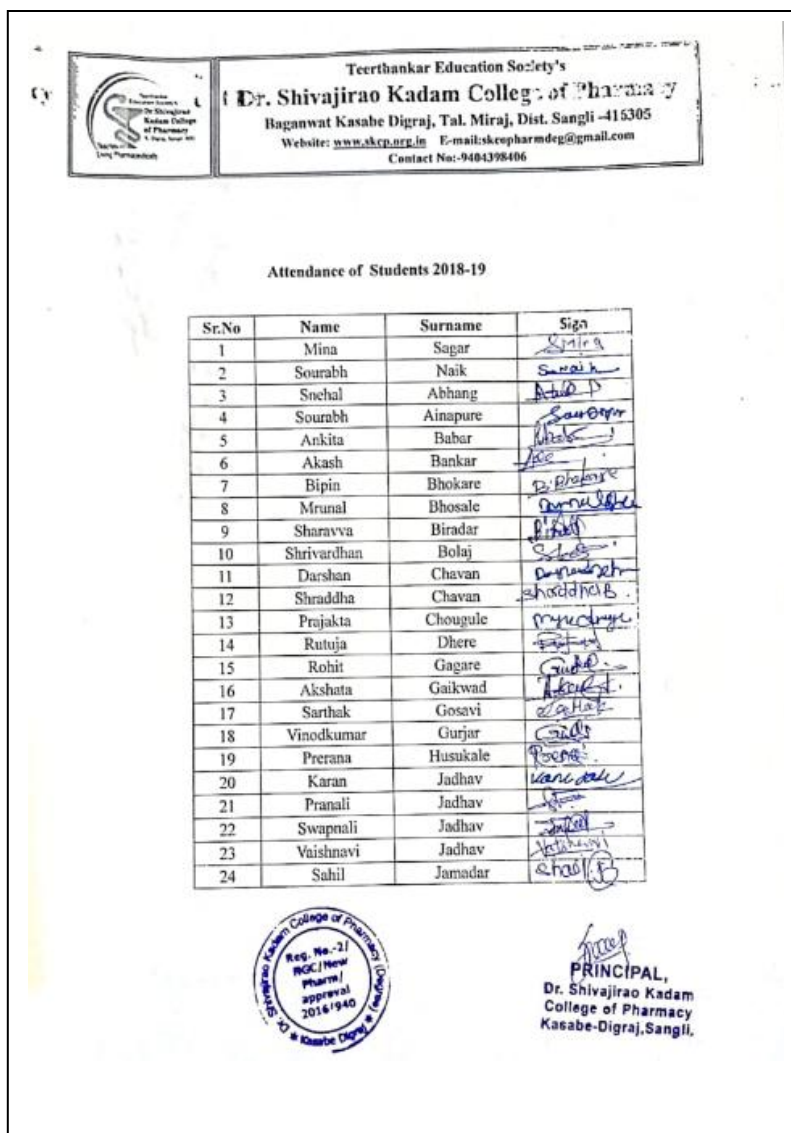 Teerthankar Education Society's
Dr. Shivajirao Kadam College of Pharmacy
Baganwat Kasabe Digraj, Tal. Miraj, Dist. Sangli -416305
Website: www.skcp.org.in E-mail:skcopharmdeg@gmail.com
Contact No:-9404398406
Dr Shivajirao
Kadam College
of Pharmacy
Attendance of Students 2018-19
Sr.No Name Surname Sign
1 Mina Sagar
2 Sourabh Naik
3 Snehal Abhang
4 Sourabh Ainapure
5 Ankita Babar
6 Akash Bankar
7 Bipin Bhokare
8 Mrunal Bhosale
9 Sharavva Biradar
10 Shrivardhan Bolaj
11 Darshan Chavan
12 Shraddha Chavan
13 Prajakta Chougule
14 Rutuja Dhere
15 Rohit Gagare
16 Akshata Gaikwad
17 Sarthak Gosavi
18 Vinodkumar Gurjar
19 Prerana Husukale
20 Karan Jadhav
21 Pranali Jadhav
22 Swapnali Jadhav
23 Vaishnavi Jadhav
24 Sahil Jamadar
Dr. Shivajirao Kadam College of Pharmacy (Degree) ★ Kasabe Digraj ★
Reg. No.-2/
NGC/New
Pharm/
approval
2016/940
PRINCIPAL,
Dr. Shivajirao Kadam
College of Pharmacy
Kasabe-Digraj,Sangli.